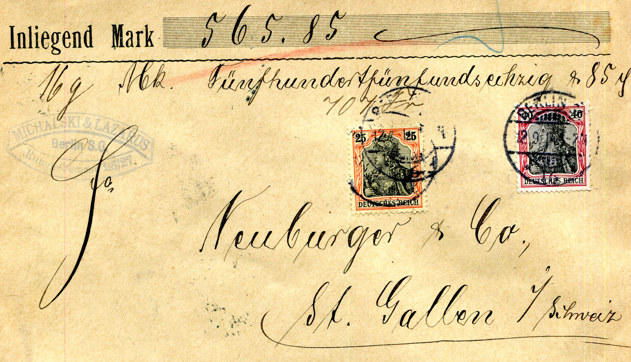 Inliegend Mark 565.85
16g Mk. Fünfhundertfünfundsechzig & 85 ₰
MICHALSKI & LAZARUS
Berlin S.O.
BERLIN
BERLIN
25 25
DEUTSCHES REICH
40
DEUTSCHES REICH
Neuburger & Co.,
St. Gallen / Schweiz